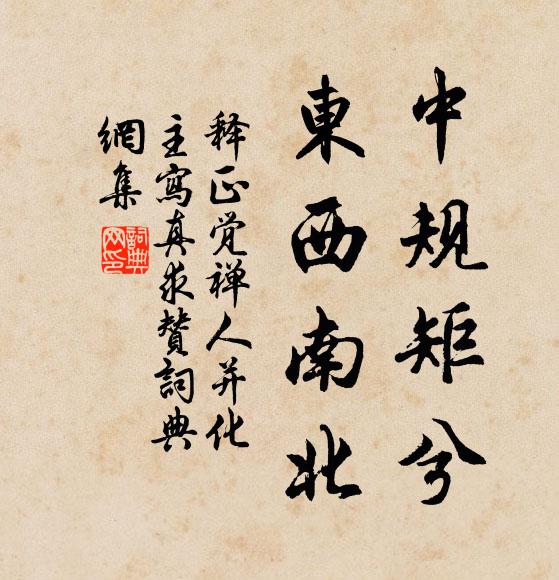 中规矩兮
東西南北
释正觉禅人并化
主寫真求賛詞典
網集
詞典網印